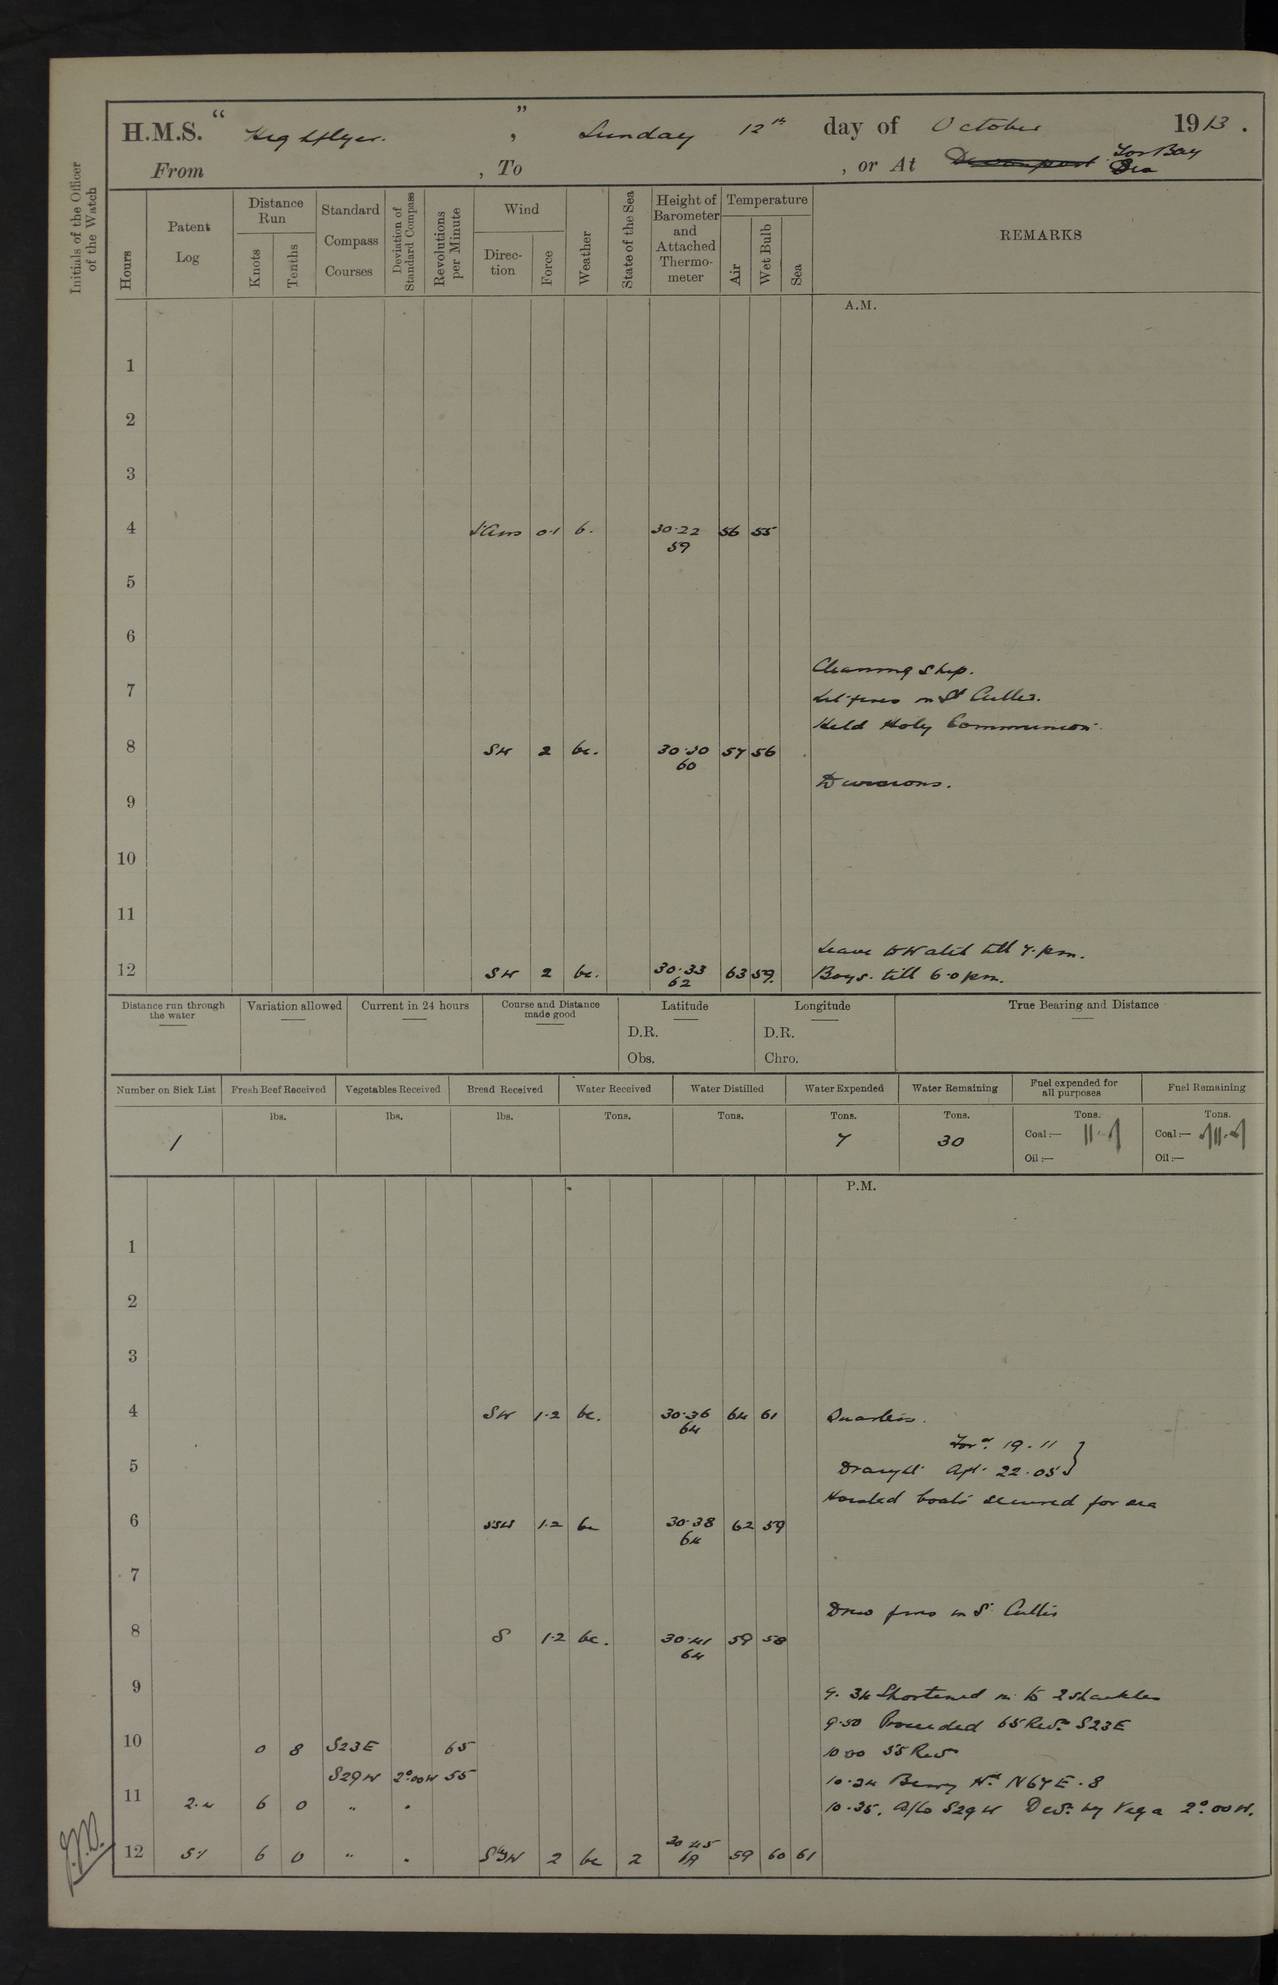 H.M.S. “ Highflyer. ” , Sunday 12th day of October 1913.
From , To , or At Devonport Tor Bay Sea
Initials of the Officer of the Watch
Hours Patent Log Distance Run Knots Tenths Standard Compass Courses Deviation of Standard Compass Revolutions per Minute Wind Direction Force Weather State of the Sea Height of Barometer and Attached Thermometer Temperature Air Wet Bulb Sea REMARKS
A.M.
1
2
3
4 0·1 b. 30·22 56 55
59
5
6
Cleaning Ship.
7 fires in St Cutter.
Held Holy Communion
8 SW 2 bc. 30·30 57 56
60
Divisions.
9
10
11
Leave to Watch till 7. pm.
12 SW 2 bc. 30·33 63 59. Boys. till 6·0 pm.
62
Distance run through the water Variation allowed Current in 24 hours Course and Distance made good Latitude Longitude True Bearing and Distance
D.R. D.R.
Obs. Chro.
Number on Sick List Fresh Beef Received Vegetables Received Bread Received Water Received Water Distilled Water Expended Water Remaining Fuel expended for all purposes Fuel Remaining
lbs. lbs. lbs. Tons. Tons. Tons. Tons. Tons. Tons.
1 7 30 Coal:— Coal:—
Oil:— Oil:—
P.M.
1
2
3
4 SW 1·2 bc. 30·36 64 61 Quarters.
64
Ford. 19·11
5 Draught Aft. 22·05
Hoisted boats secured for sea
6 SSW 1·2 bc 30·38 62 59
64
7
Drew fires in S. Cutter
8 S 1·2 bc. 30·41 59 58
64
9 9.34 Shortened in to 2 shackles
9·50 Proceeded 65 Revs. S23E
10 0 8 S23E 65 10·00 55 Revs
S29W 2°·00W 55 10·34 Berry Hd. N67E·8
11 2·4 6 0 „ „ 10·35. A/Co S29W Devn. by Vega 2°·00W.
12 5·1 6 0 „ „ SbyW 2 bc 2 30·45 59 60 61